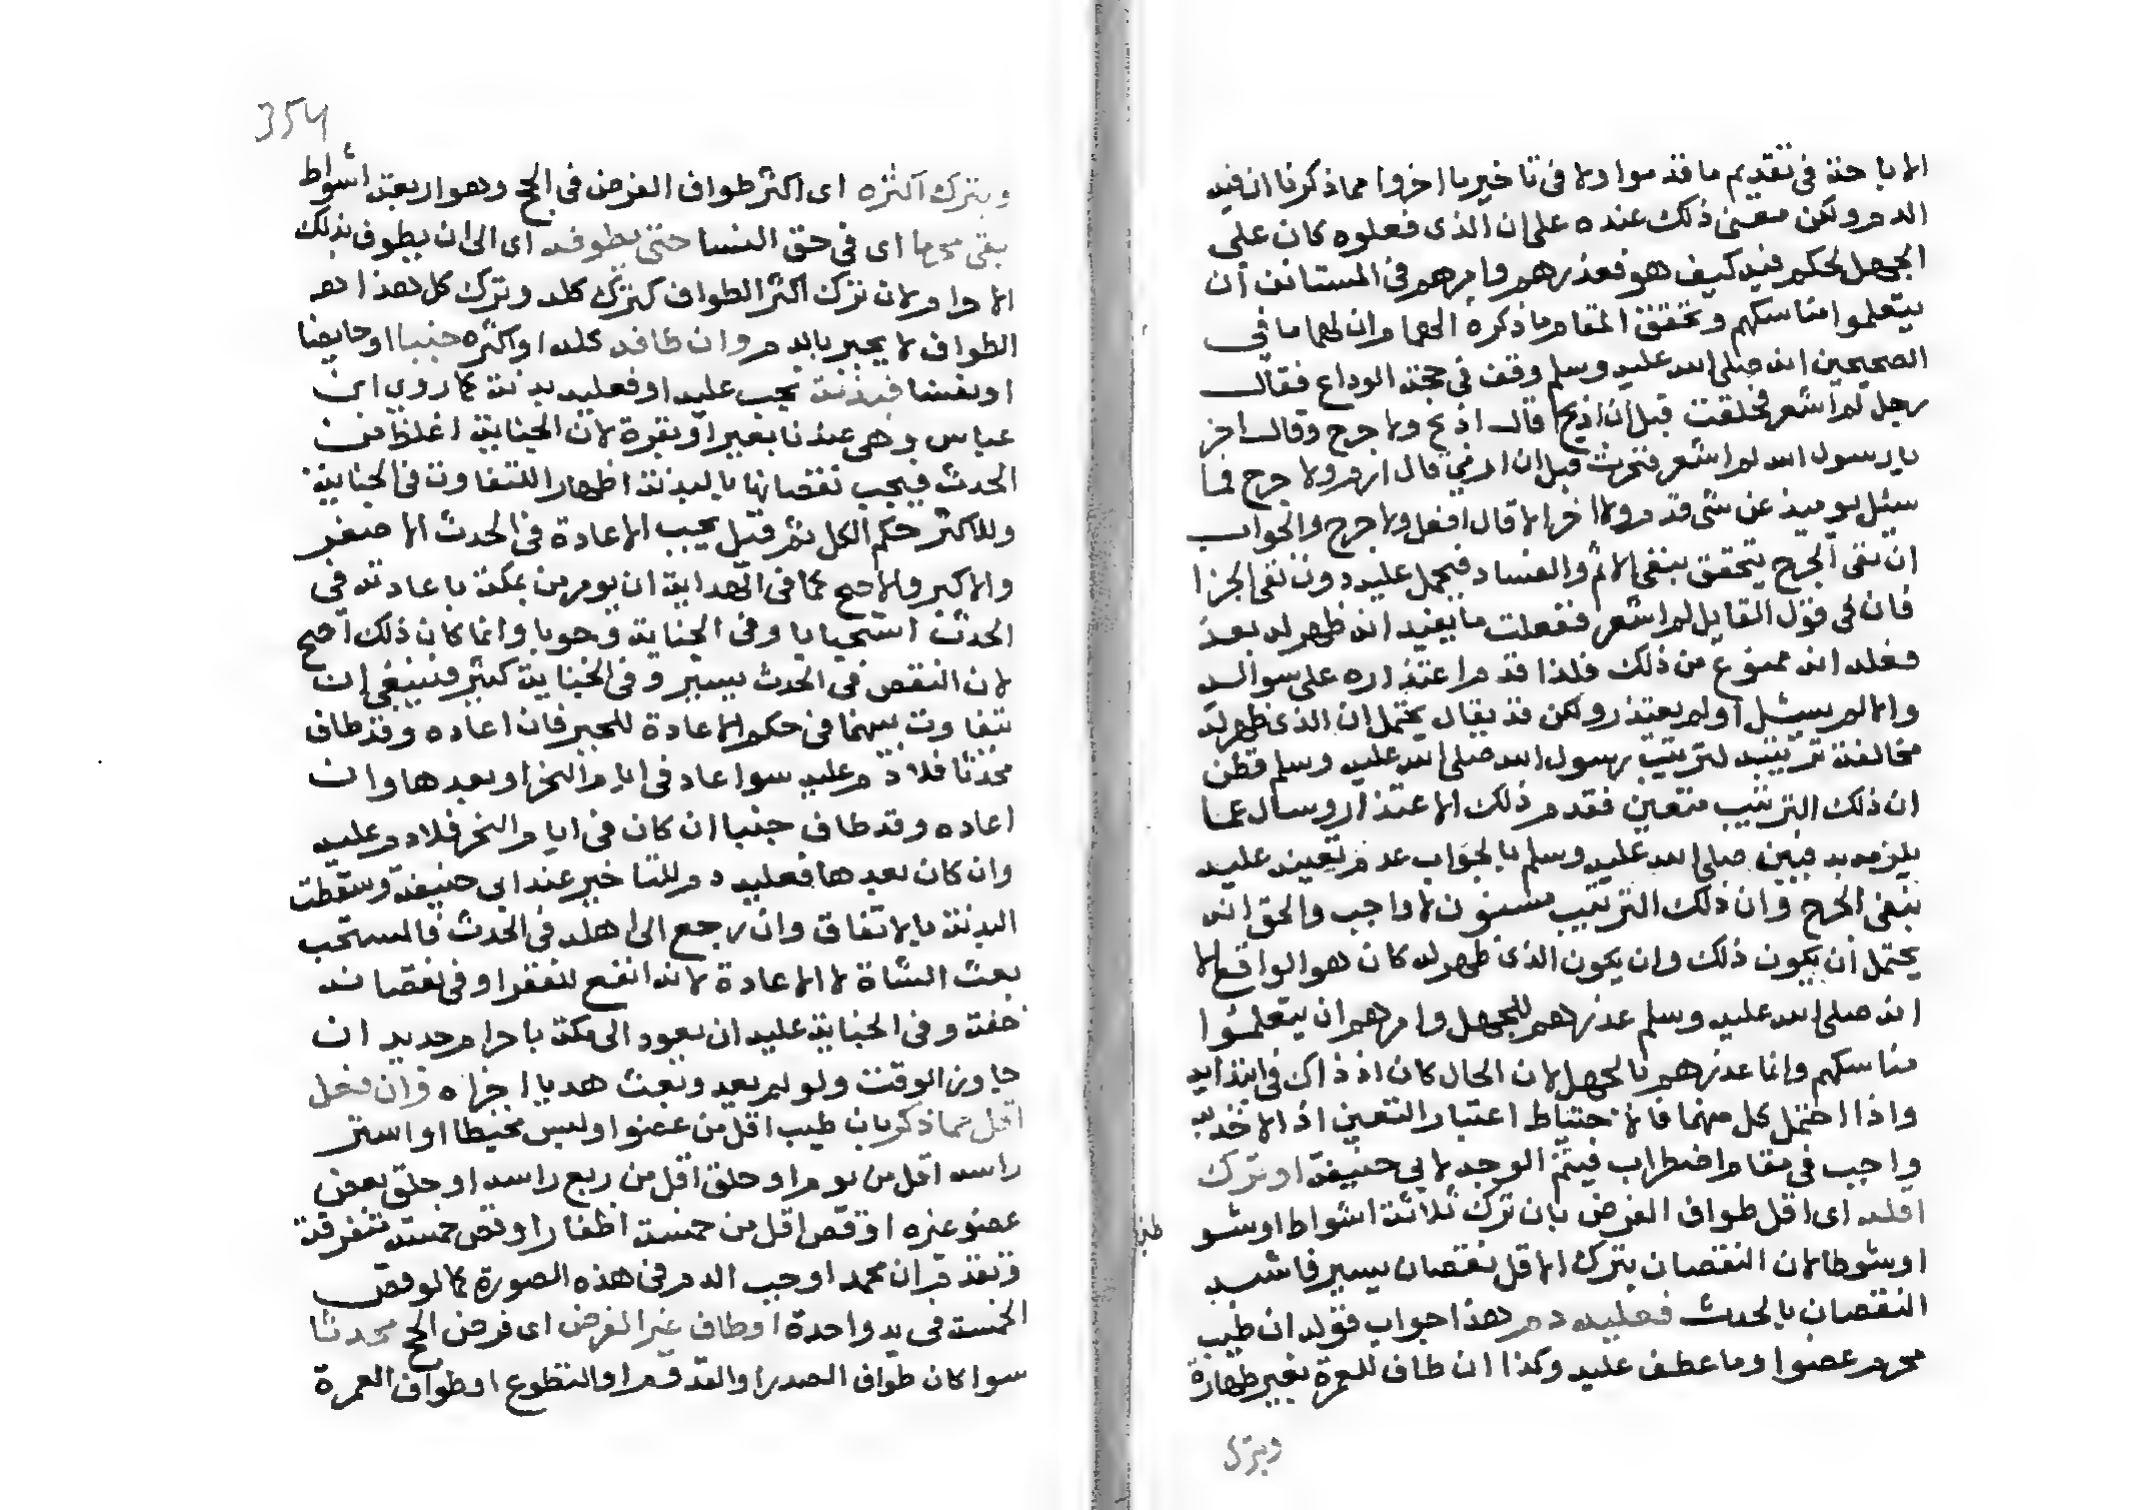 الاباحة في تقديم ما قدموا ولا في تاخير ما اخروا مما ذكرنا ان فيه
الدم ولكن معنى ذلك عنده على ان الذى فعلوه كان على
الجهل لحكم فيه كيف هو فعذرهم وامرهم في المستانف ان
يتعلموا مناسكهم وتحقق المقام ما ذكره الهمام ان لهما ما في
الصحيحين انه صلى الله عليه وسلم وقف في حجة الوداع فقال
رجل لم اشعر فحلقت قبل ان اذبح قال اذبح ولا حرج وقال اخر
يا رسول الله لم اشعر فنحرت قبل ان ارمي قال ارم ولا حرج فما
سئل يوميذ عن شى قدم ولا اخر الا قال افعل ولا حرج والجواب
ان نفى الحرج يتحقق بنفى الاثم والفساد فيحمل عليه دون نفى الجزا
فان في قول القايل لم اشعر ففعلت ما يفيد انه ظهر له بعد
فعله انه ممنوع من ذلك فلذا قدم اعتذاره على سواله
والا لم يسئل او لم يعتذر ولكن قد يقال يحتمل ان الذى ظهر له
مخالفة ترتيبه لترتيب رسول الله صلى الله عليه وسلم فظن
ان ذلك الترتيب متعين فقدم ذلك الاعتذار وسال عما
يلزمه به فبين صلى الله عليه وسلم بالجواب عدم تعيينه عليه
بنفى الحرج وان ذلك الترتيب مسنون لا واجب والحق انه
يحتمل ان يكون ذلك وان يكون الذى ظهر له كان هو الواقع الا
انه صلى الله عليه وسلم عذرهم للجهل وامرهم ان يتعلموا
مناسكهم وانما عذرهم بالجهل لان الحال كان اذ ذاك في ابتدايه
واذا احتمل كل منهما فالاحتياط اعتبار التعيين اذ الاخذ به
واجب في مقام اضطراب فيتم الوجه لابي حنيفة او ترك
اقله اى اقل طواف الفرض بان ترك ثلاثة اشواط او شو
او شوطا لان النقصان بترك الاقل نقصان يسير فاشبه
النقصان بالحدث فعليه دم هذا جواب قوله ان طيب
محرم عضوا وما عطف عليه وكذا ان طاف للعمرة بغير طهارة
وبترك
354
وبترك اكثره اى اكثر طواف الفرض في الحج وهو اربعة اشواط
بقى محرما اى في حق النسا حتى يطوفه اى الى ان يطوف بذلك
الاحرام ولان ترك اكثر الطواف كترك كله وترك كل هذا هو
الطواف لا يجبر بالدم وان طافه كله او اكثره جنبا او حايضا
او نفسا فبدنة يجب عليه او فعليه بدنة كما روي ابن
عباس وهى عندنا بعير او بقرة لان الجنابة اغلظ من
الحدث فيجب نقصانها بالبدنة اظهارا للتفاوت في الجنابة
وللاكثر حكم الكل ثم قيل يجب الاعادة في الحدث الاصغر
والاكبر والاصح كما في الهداية ان يومر من بمكة باعادته في
الحدث استحبابا وفي الجنابة وجوبا وانما كان ذلك اصح
لان النقص في الحدث يسير وفي الجنابة كثير فينبغي ان
تتفاوت بينهما في حكم الاعادة للجبر فان اعاده وقد طاف
محدثا فلا دم عليه سوا عاد في ايام النحر او بعدها وان
اعاده وقد طاف جنبا ان كان في ايام النحر فلا دم عليه
وان كان بعدها فعليه دم للتاخير عند ابي حنيفة وسقطت
البدنة بالاتفاق وان رجع الى اهله في الحدث فالمستحب
بعث الشاة لا الاعادة لانه انفع للفقرا وفي نقصانه
خفة وفي الجنابة عليه ان يعود الى مكة باحرام جديد ان
جاوز الوقت ولو لم يعد وبعث هديا اجزاه وان فعل
اقل مما ذكر بان طيب اقل من عضو او لبس مخيطا او استر
راسه اقل من يوم او حلق اقل من ربع راسه او حلق بعض
عضو غيره او قص اقل من خمسة اظفار او قص خمسة متفرقة
وتقدم ان محمد اوجب الدم في هذه الصورة كما لو قص
الخمسة في يد واحدة او طاف غير الفرض اى فرض الحج محدثا
سوا كان طواف الصدر او القدوم او التطوع او طواف العمرة